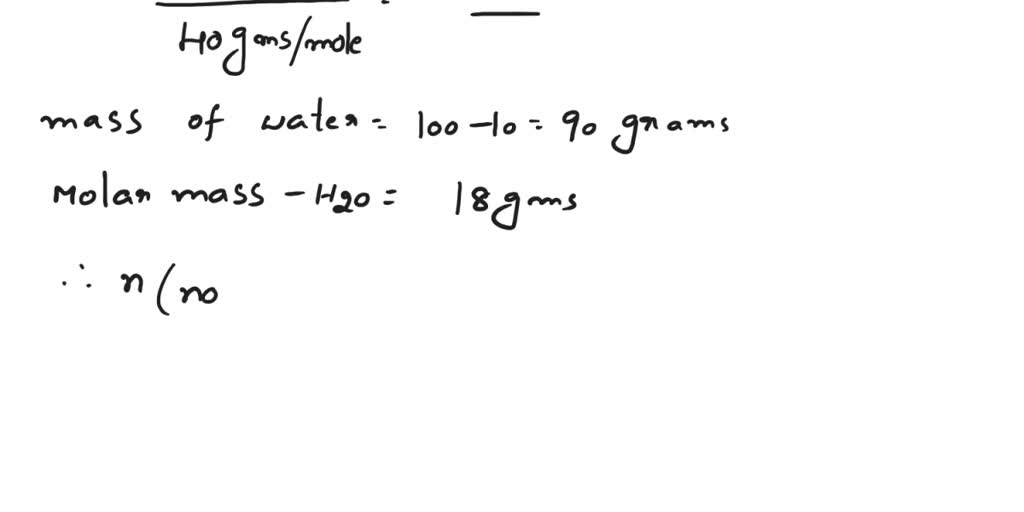 40 gms/mole
mass of water = 100 - 10 = 90 grams
Molar mass - H2O = 18 gms
∴ n (no